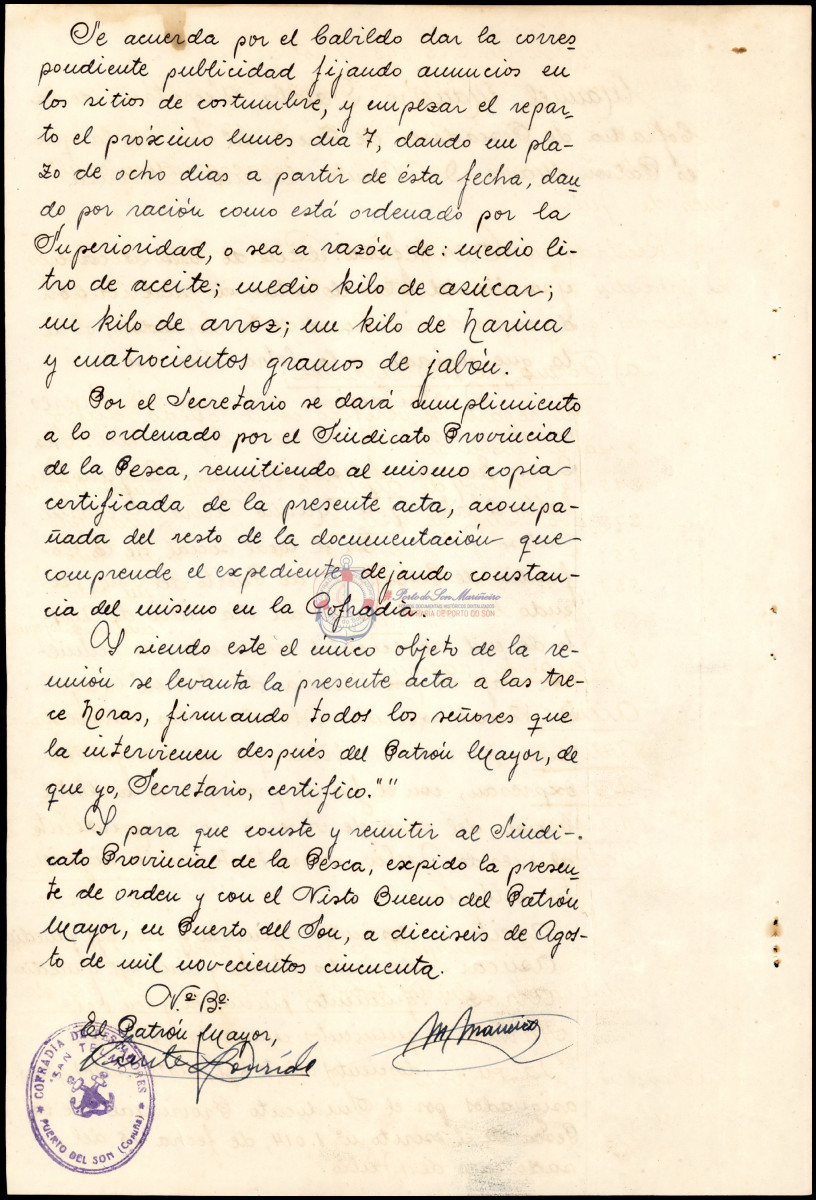 Se acuerda por el Cabildo dar la corres-
pondiente publicidad fijando anuncios en
los sitios de costumbre, y empezar el repar-
to el próximo lunes dia 7, dando un pla-
zo de ocho dias a partir de ésta fecha, dan-
do por ración como está ordenado por la
Superioridad, o sea a razón de: medio li-
tro de aceite; medio kilo de azúcar;
un kilo de arroz; un kilo de harina
y cuatrocientos gramos de jabón.
Por el Secretario se dará cumplimiento
a lo ordenado por el Sindicato Provincial
de la Pesca, remitiendo al mismo copia
certificada de la presente acta, acompa-
ñada del resto de la documentación que
comprende el expediente, dejando constan-
cia del mismo en la Cofradía.
Porto do Son Mariñeiro
Y siendo este el único objeto de la re-
unión se levanta la presente acta a las tre-
ce horas, firmando todos los señores que
la intervienen después del Patrón Mayor, de
que yo, Secretario, certifico.""
Y para que conste y remitir al Sindi-
cato Provincial de la Pesca, expido la presen-
te de orden y con el Visto Bueno del Patrón
Mayor, en Puerto del Son, a dieciseis de Agos-
to de mil novecientos cincuenta.
Vº Bº
El Patrón Mayor,
COFRADIA DE PESCADORES
"SAN TELMO"
PUERTO DEL SON (Coruña)